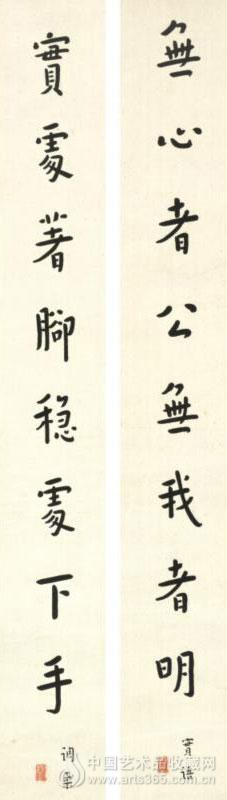 無心者公無我者明
實處著腳稳處下手
中国艺术品收藏网
www.arts365.com.cn